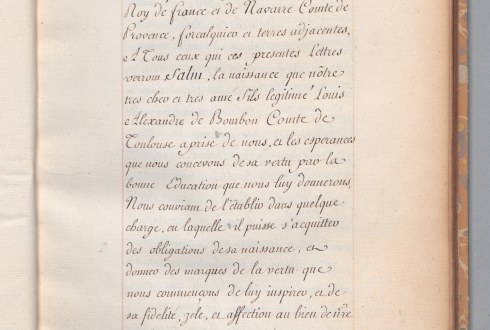 Roy de france et de Navarre Comte de
Provence, forcalquier et terres adjacentes,
A Tous ceux qui ces presentes Lettres
verront Salut, la naissance que nôtre
tres cher et tres amé fils legitimé Louis
Alexandre de Bourbon Comte de
Toulouse a prise de nous, et les esperances
que nous concevons de sa vertu par la
bonne Education que nous luy donnerons,
Nous conviant de l'établir dans quelque
charge, en laquelle il puisse s'acquitter
des obligations de sa naissance, et
donner des marques de la vertu que
nous commençons de luy inspirer, et de
sa fidelité, zele, et affection au bien de nre